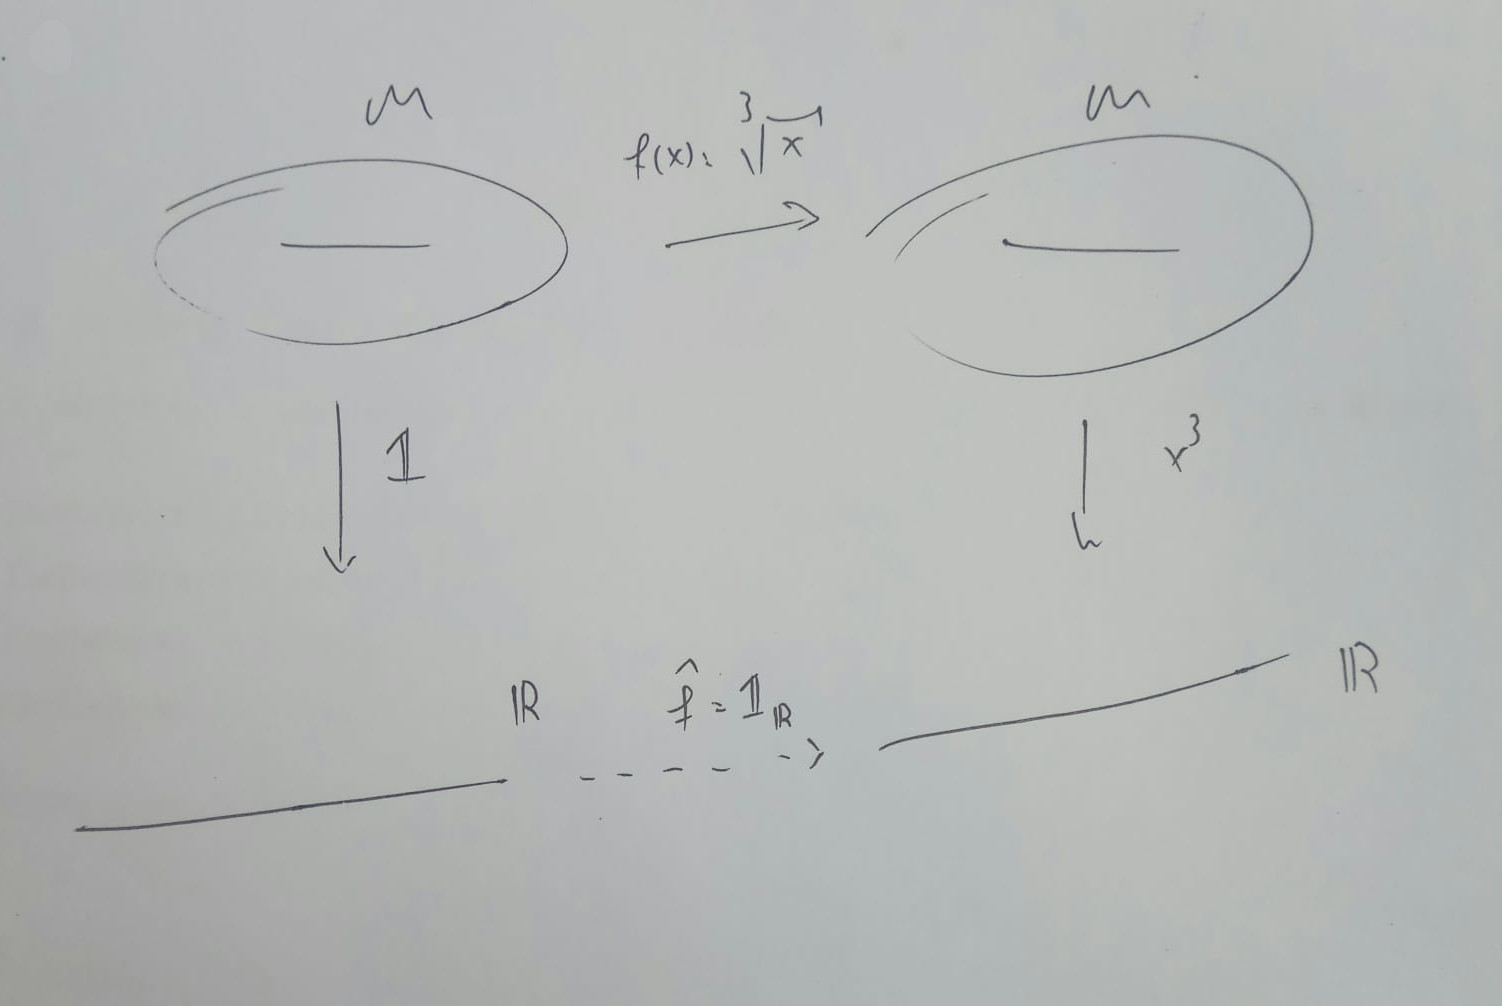 M
f(x): ∛x
M
𝟙
x³
ℝ
f̂ = 𝟙_ℝ
ℝ